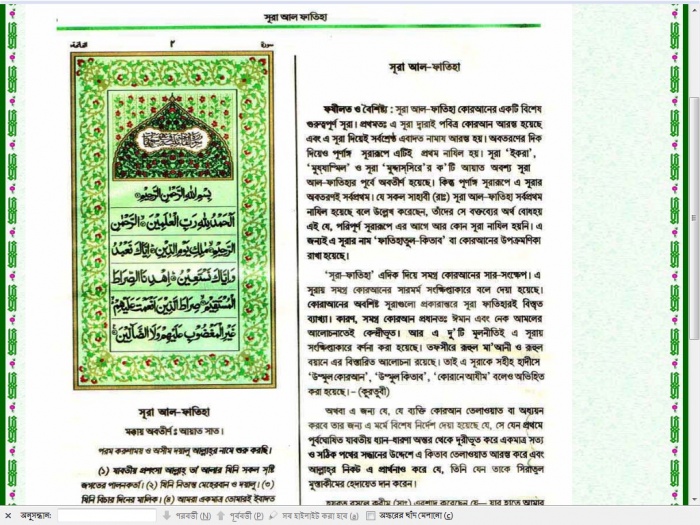 সূরা আল ফাতিহা
الفاتحة
২
سورة
بِسْمِ اللهِ الرَّحْمٰنِ الرَّحِيْمِ
اَلْحَمْدُ لِلّٰهِ رَبِّ الْعٰلَمِيْنَ الرَّحْمٰنِ
الرَّحِيْمِ مٰلِكِ يَوْمِ الدِّيْنِ اِيَّاكَ نَعْبُدُ
وَاِيَّاكَ نَسْتَعِيْنُ اِهْدِنَا الصِّرَاطَ
الْمُسْتَقِيْمَ صِرَاطَ الَّذِيْنَ اَنْعَمْتَ عَلَيْهِمْ
غَيْرِ الْمَغْضُوْبِ عَلَيْهِمْ وَلَا الضَّآلِّيْنَ
সূরা আল-ফাতিহা
মক্কায় অবতীর্ণ ঃ আয়াত সাত।
পরম করুণাময় ও অসীম দয়ালু আল্লাহ্‌র নামে শুরু করছি।
(১) যাবতীয় প্রশংসা আল্লাহ্ তা'আলার যিনি সকল সৃষ্টি
জগতের পালনকর্তা। (২) যিনি নিতান্ত মেহেরবান ও দয়ালু। (৩)
যিনি বিচার দিনের মালিক। (৪) আমরা একমাত্র তোমারই ইবাদত
সূরা আল-ফাতিহা
ফযীলত ও বৈশিষ্ট্য : সূরা আল-ফাতিহা কোরআনের একটি বিশেষ
গুরুত্বপূর্ণ সূরা। প্রথমতঃ এ সূরা দ্বারাই পবিত্র কোরআন আরম্ভ হয়েছে
এবং এ সূরা দিয়েই সর্বশ্রেষ্ঠ এবাদত নামায আরম্ভ হয়। অবতরণের দিক
দিয়েও পূর্ণাঙ্গ সূরারূপে এটিই প্রথম নাযিল হয়। সূরা 'ইকরা',
'মুয্‌যাম্মিল' ও সূরা 'মুদ্দাস্‌সিরে'র ক'টি আয়াত অবশ্য সূরা
আল-ফাতিহার পূর্বে অবতীর্ণ হয়েছে। কিন্তু পূর্ণাঙ্গ সূরারূপে এ সূরার
অবতরণই সর্বপ্রথম। যে সকল সাহাবী (রাঃ) সূরা আল-ফাতিহা সর্বপ্রথম
নাযিল হয়েছে বলে উল্লেখ করেছেন, তাঁদের সে বক্তব্যের অর্থ বোধহয়
এই যে, পরিপূর্ণ সূরারূপে এর আগে আর কোন সূরা নাযিল হয়নি। এ
জন্যই এ সূরার নাম 'ফাতিহাতুল-কিতাব' বা কোরআনের উপক্রমণিকা
রাখা হয়েছে।
'সূরা-ফাতিহা' এদিক দিয়ে সমগ্র কোরআনের সার-সংক্ষেপ। এ
সূরায় সমগ্র কোরআনের সারমর্ম সংক্ষিপ্তাকারে বলে দেয়া হয়েছে।
কোরআনের অবশিষ্ট সূরাগুলো প্রকারান্তরে সূরা ফাতিহারই বিস্তৃত
ব্যাখ্যা। কারণ, সমগ্র কোরআন প্রধানতঃ ঈমান এবং নেক আমলের
আলোচনাতেই কেন্দ্রীভূত। আর এ দু'টি মূলনীতিই এ সূরায়
সংক্ষিপ্তাকারে বর্ণনা করা হয়েছে। তফসীরে রূহুল মা'আনী ও রূহুল
বয়ানে এর বিস্তারিত আলোচনা রয়েছে। তাই এ সূরাকে সহীহ হাদীসে
'উম্মুল কোরআন', 'উম্মুল কিতাব', 'কোরানে আযীম' বলেও অভিহিত
করা হয়েছে।-(কুরতুবী)
অথবা এ জন্য যে, যে ব্যক্তি কোরআন তেলাওয়াত বা অধ্যয়ন
করবে তার জন্য এ মর্মে বিশেষ নির্দেশ দেয়া হয়েছে যে, সে যেন প্রথমে
পূর্বঘোষিত যাবতীয় ধ্যান-ধারণা অন্তর থেকে দূরীভূত করে একমাত্র সত্য
ও সঠিক পথের সন্ধানের উদ্দেশে এ কিতাব তেলাওয়াত আরম্ভ করে এবং
আল্লাহ্‌র নিকট এ প্রার্থনাও করে যে, তিনি যেন তাকে সিরাতুল
মুস্তাকীমের হেদায়েত দান করেন।
হযরত রসূলে করীম (সাঃ) এরশাদ করেছেন যে— যার হাতে আমার
অনুসন্ধান:
পরবর্তী (N)
পূর্ববর্তী (P)
সব হাইলাইট করা হবে (a)
অক্ষরের ছাঁদ মেলানো (c)